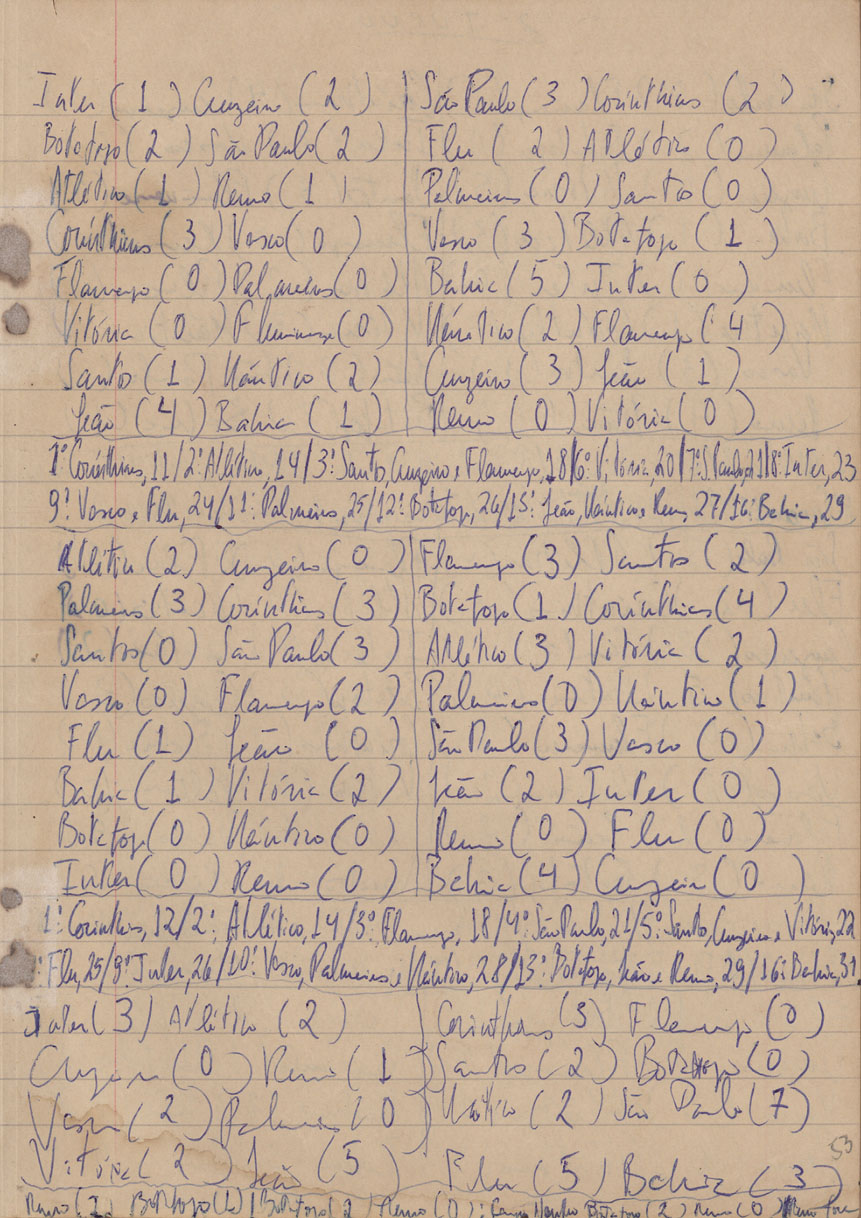 Inter (1) Cruzeiro (2) São Paulo (3) Corínthians (2)
Botafogo (2) São Paulo (2) Flu (2) Atlético (0)
Atlético (1) Remo (1) Palmeiras (0) Santos (0)
Corínthians (3) Vasco (0) Vasco (3) Botafogo (1)
Flamengo (0) Palmeiras (0) Bahia (5) Inter (0)
Vitória (0) Fluminense (0) Náutico (2) Flamengo (4)
Santos (1) Náutico (2) Cruzeiro (3) Leão (1)
Leão (4) Bahia (1) Remo (0) Vitória (0)
1º Corínthians, 11/2º Atlético, 14/3º Santos, Cruzeiro e Flamengo, 18/6º Vitória, 20/7º S. Paulo, 21/8º Inter, 23
9º Vasco e Flu, 24/11º Palmeiras, 25/12º Botafogo, 26/13º Leão, Náutico e Remo, 27/16º Bahia, 29
Atlético (2) Cruzeiro (0) Flamengo (3) Santos (2)
Palmeiras (3) Corínthians (3) Botafogo (1) Corínthians (4)
Santos (0) São Paulo (3) Atlético (3) Vitória (2)
Vasco (0) Flamengo (2) Palmeiras (0) Náutico (1)
Flu (1) Leão (0) São Paulo (3) Vasco (0)
Bahia (1) Vitória (2) Leão (2) Inter (0)
Botafogo (0) Náutico (0) Remo (0) Flu (0)
Inter (0) Remo (0) Bahia (4) Cruzeiro (0)
1º Corínthians, 12/2º Atlético, 14/3º Flamengo, 18/4º São Paulo, 21/5º Santos, Cruzeiro e Vitória, 22
º Flu, 25/9º Inter, 26/10º Vasco, Palmeiras e Náutico, 28/13º Botafogo, Leão e Remo, 29/16º Bahia, 31.
Inter (3) Atlético (2) Corinthians (3) Flamengo (0)
Cruzeiro (0) Remo (1) Santos (2) Botafogo (0)
Vasco (2) Palmeiras (0) Náutico (2) São Paulo (7)
Vitória (2) Leão (5) Flu (5) Bahia (3)
53
Remo (1) Botafogo (2) Remo (0) Botafogo (2) Remo (0)